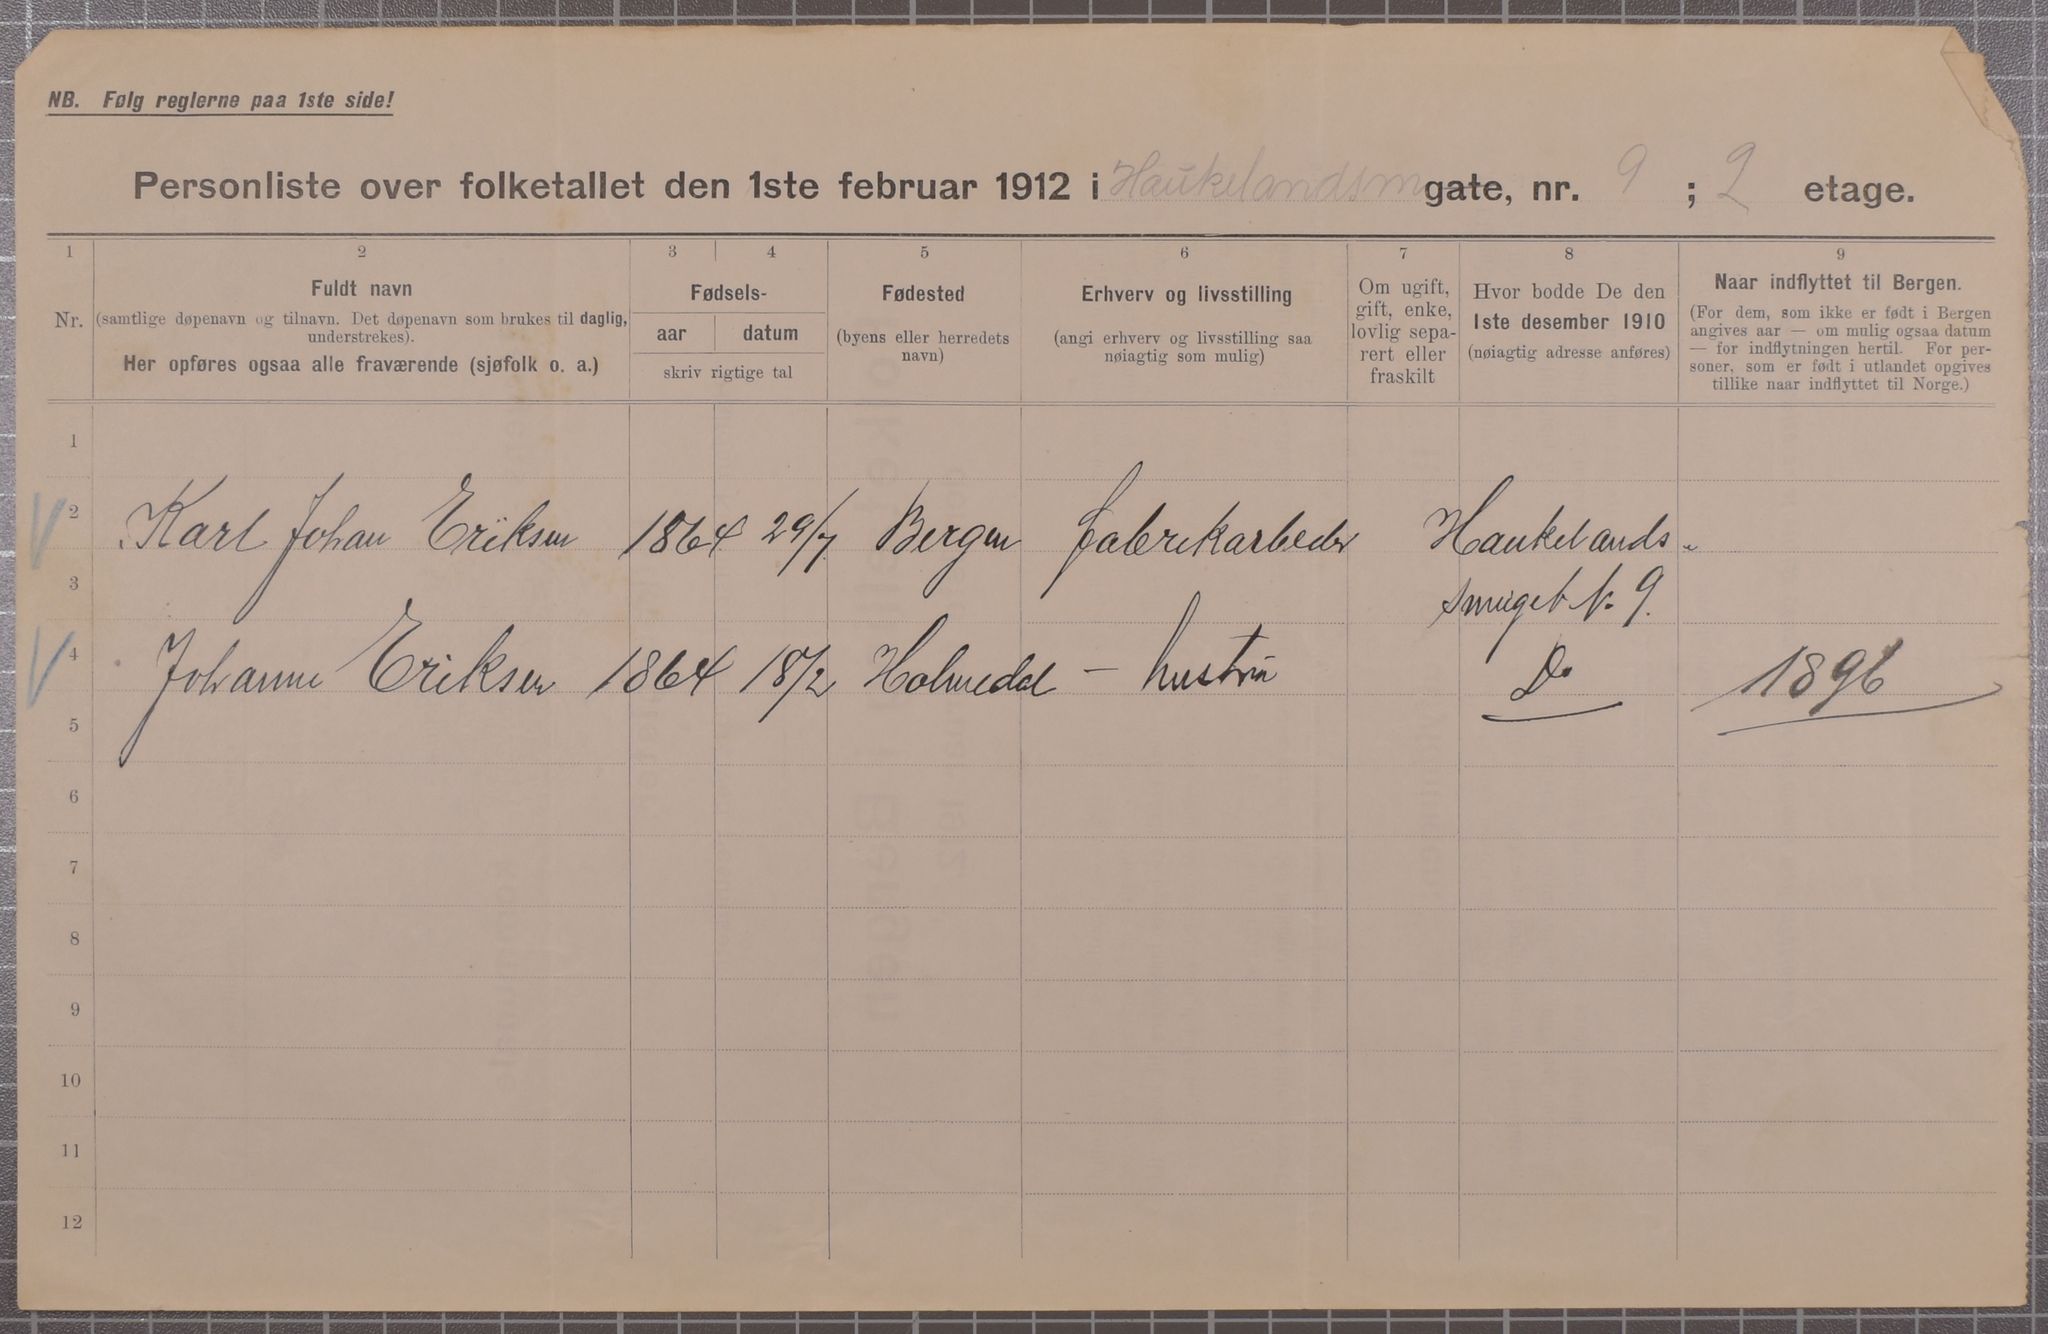 NB. Følg reglerne paa 1ste side!
Personliste over folketallet den 1ste februar 1912 i Haukelandsm gate, nr. 9 ; 2 etage.
1 2 3 4 5 6 7 8 9
Nr.
Fuldt navn
(samtlige døpenavn og tilnavn. Det døpenavn som brukes til daglig,
understrekes).
Her opføres ogsaa alle fraværende (sjøfolk o. a.)
Fødsels-
aar datum
skriv rigtige tal
Fødested
(byens eller herredets
navn)
Erhverv og livsstilling
(angi erhverv og livsstilling saa
nøiagtig som mulig)
Om ugift,
gift, enke,
lovlig sepa-
rert eller
fraskilt
Hvor bodde De den
1ste desember 1910
(nøiagtig adresse anføres)
Naar indflyttet til Bergen.
(For dem, som ikke er født i Bergen
angives aar — om mulig ogsaa datum
— for indflytningen hertil. For per-
soner, som er født i utlandet opgives
tillike naar indflyttet til Norge.)
1
2 Karl Johan Eriksen 1864 29/7 Bergen fabrikarbeder Haukelands
3 smuget N. 9.
4 Johanne Eriksen 1864 18/2 Holmedal – hustru Do 1896
5
6
7
8
9
10
11
12